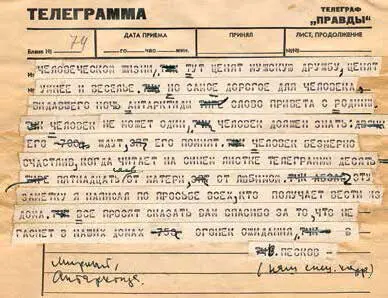 ТЕЛЕГРАММА
ТЕЛЕГРАФ
"ПРАВДЫ"
Бланк № 74
ДАТА ПРИЕМА
го. час. мин.
ПРИНЯЛ
ЛИСТ, ПРОДОЛЖЕНИЕ
№№
ЧЕЛОВЕЧЕСКОЙ ЖИЗНИ, ТЧК ТУТ ЦЕНЯТ МУЖСКУЮ ДРУЖБУ, ЦЕНЯТ
УМНЕЕ И ВЕСЕЛЬЕ. ТЧК НО САМОЕ ДОРОГОЕ ДЛЯ ЧЕЛОВЕКА,
ВИДАВШЕГО НОЧЬ АНТАРКТИДЫ ТИРЕ СЛОВО ПРИВЕТА С РОДИНЫ.
ТЧК ЧЕЛОВЕК НЕ МОЖЕТ ОДИН, ТЧК ЧЕЛОВЕК ДОЛЖЕН ЗНАТЬ: ДВОЕЧ
ЕГО ЖДУТ, ЗПТ ЕГО ПОМНЯТ. ЧЕЛОВЕК БЕЗМЕРНО
СЧАСТЛИВ, КОГДА ЧИТАЕТ НА СИНЕМ ЛИСТКЕ ТЕЛЕГРАММЫ ДЕСЯТЬ
ТИРЕ ПЯТНАДЦАТЬ ОТ МАТЕРИ, ЗПТ ОТ ЛЮБИМОЙ. ТЧК АБЗАЦ ЭТУ
ЗАМЕТКУ Я НАПИСАЛ ПО ПРОСЬБЕ ВСЕХ, КТО ПОЛУЧАЕТ ВЕСТИ ИЗ
ДОМА. ТЧК ВСЕ ПРОСЯТ СКАЗАТЬ ВАМ СПАСИБО ЗА ТО, ЧТО НЕ
ГАСНЕТ В НАШИХ ДОМАХ ОГОНЕК ОЖИДАНИЯ, ТЧК
В. ПЕСКОВ -
Мирный,
Антарктида.
(наш спец. корр.)